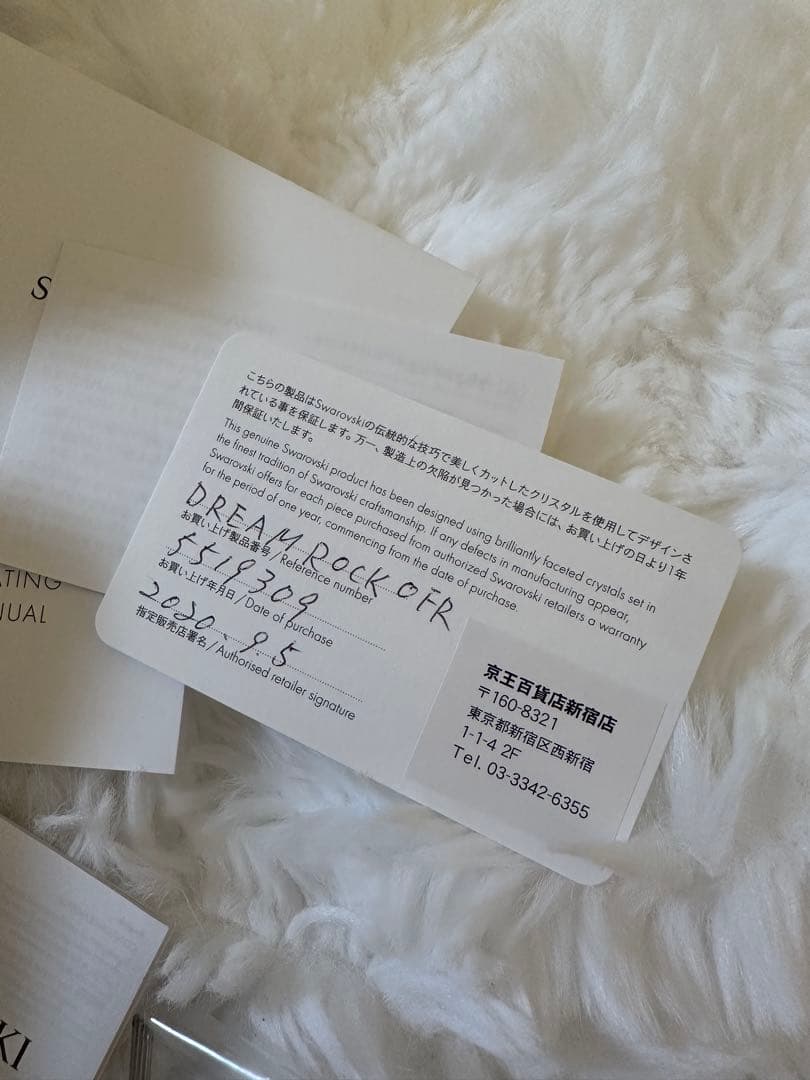 S
こちらの製品はSwarovskiの伝統的な技巧で美しくカットしたクリスタルを使用してデザインさ
れている事を保証します。万一、製造上の欠陥が見つかった場合には、お買い上げの日より1年
間保証いたします。
This genuine Swarovski product has been designed using brilliantly faceted crystals set in
the finest tradition of Swarovski craftsmanship. If any defects in manufacturing appear,
Swarovski offers for each piece purchased from authorized Swarovski retailers a warranty
for the period of one year, commencing from the date of purchase.
DREAM ROCK OFR
お買い上げ製品番号 / Reference number
5519309
お買い上げ年月日 / Date of purchase
2020、9.5
指定販売店署名 / Authorised retailer signature
京王百貨店新宿店
〒160-8321
東京都新宿区西新宿
1-1-4 2F
Tel. 03-3342-6355
ATING
NUAL
KI